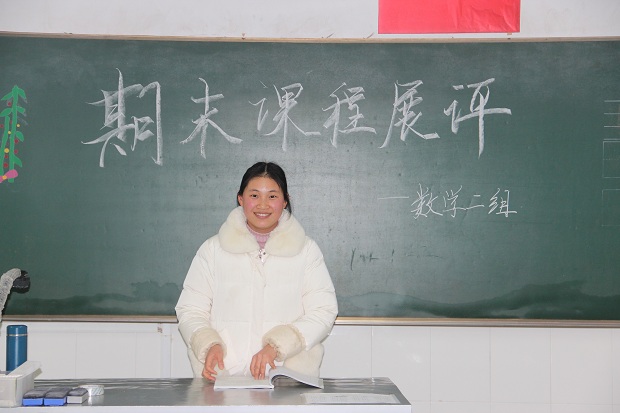 期末课程展评
—数学二组